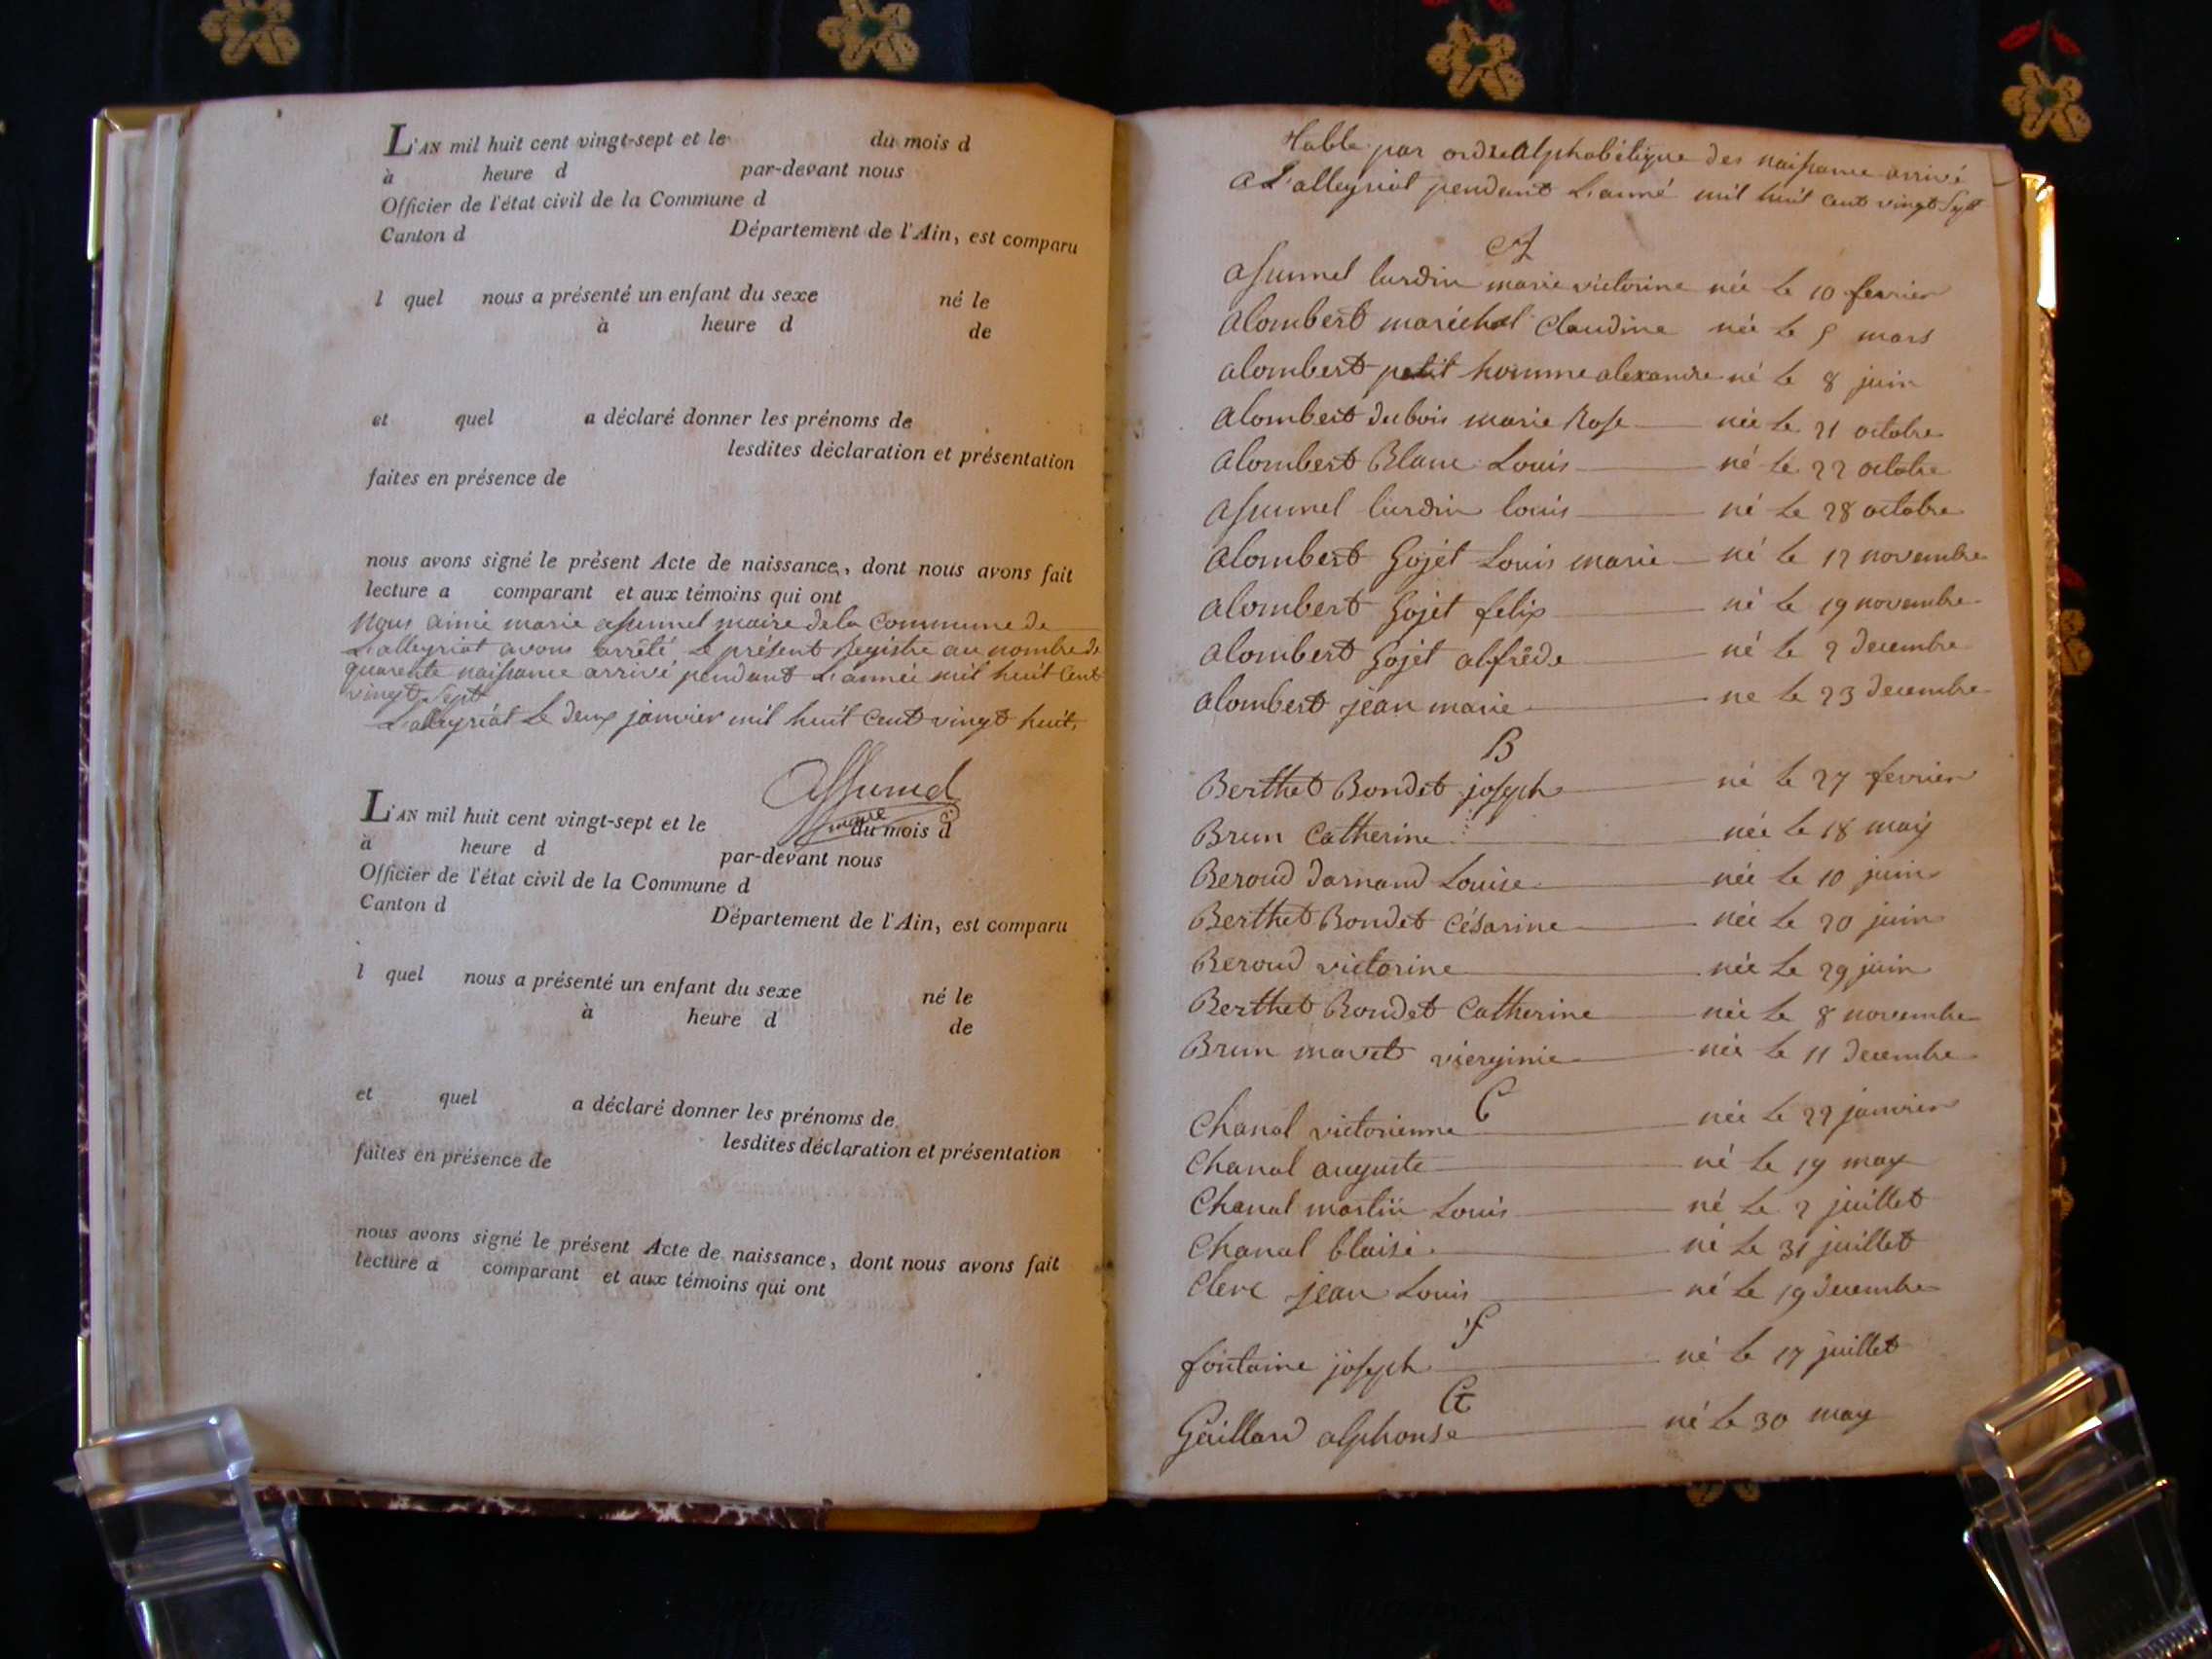 L'AN mil huit cent vingt-sept et le du mois d
à heure d par-devant nous
Officier de l'état civil de la Commune d
Canton d Département de l'Ain, est comparu
l quel nous a présenté un enfant du sexe né le
à heure d de
et quel a déclaré donner les prénoms de
lesdites déclaration et présentation
faites en présence de
nous avons signé le présent Acte de naissance, dont nous avons fait
lecture a comparant et aux témoins qui ont
Nous aimé marie assumel maire de la Commune de
L'alleyriat avons arrêté le présent Registre au nombre de
quarente naissance arrivé pendant L'année mil huit Cent
vingt Sept
L'alleyriat Le deux janvier mil huit Cent vingt huit
Assumel
maire
L'AN mil huit cent vingt-sept et le du mois d
à heure d par-devant nous
Officier de l'état civil de la Commune d
Canton d Département de l'Ain, est comparu
l quel nous a présenté un enfant du sexe né le
à heure d de
et quel a déclaré donner les prénoms de
lesdites déclaration et présentation
faites en présence de
nous avons signé le présent Acte de naissance, dont nous avons fait
lecture a comparant et aux témoins qui ont
Table par ordre Alphabétique des naissance arrivé
a L'alleyriat pendant L'anné mil huit cent vingt Sept
A
assumel lurdin marie victorine née le 10 fevrier
alombert maréchal Claudine née le 5 mars
alombert petit homme alexandre né le 8 juin
alombert dubois marie Rose née le 21 octobre
alombert Blanc Louis né le 22 octobre
assumel lurdin louis né le 28 octobre
alombert Gojet Louis marie né le 12 novembre
alombert Gojet felix né le 19 novembre
alombert Gojet alfrède né le 2 decembre
alombert jean marie ne le 23 decembre
B
Berthet Bondet joseph né le 27 fevrier
Brun Catherine née le 18 maÿ
Beroud darnand Louise née le 10 juin
Berthet Bondet Césarine née le 20 juin
Beroud victorine née le 29 juin
Berthet Bondet Catherine née le 8 novembre
Brun mavet vierginie née le 11 decembre
C
Chanal victorienne née le 22 janvier
Chanal auguste né le 19 may
Chanal martin Louis né le 2 juillet
Chanal blaise né le 31 juillet
Clerc jean Louis né le 19 decembre
f
fontaine joseph né le 17 juillet
G
Gaillard alphonse né le 30 may